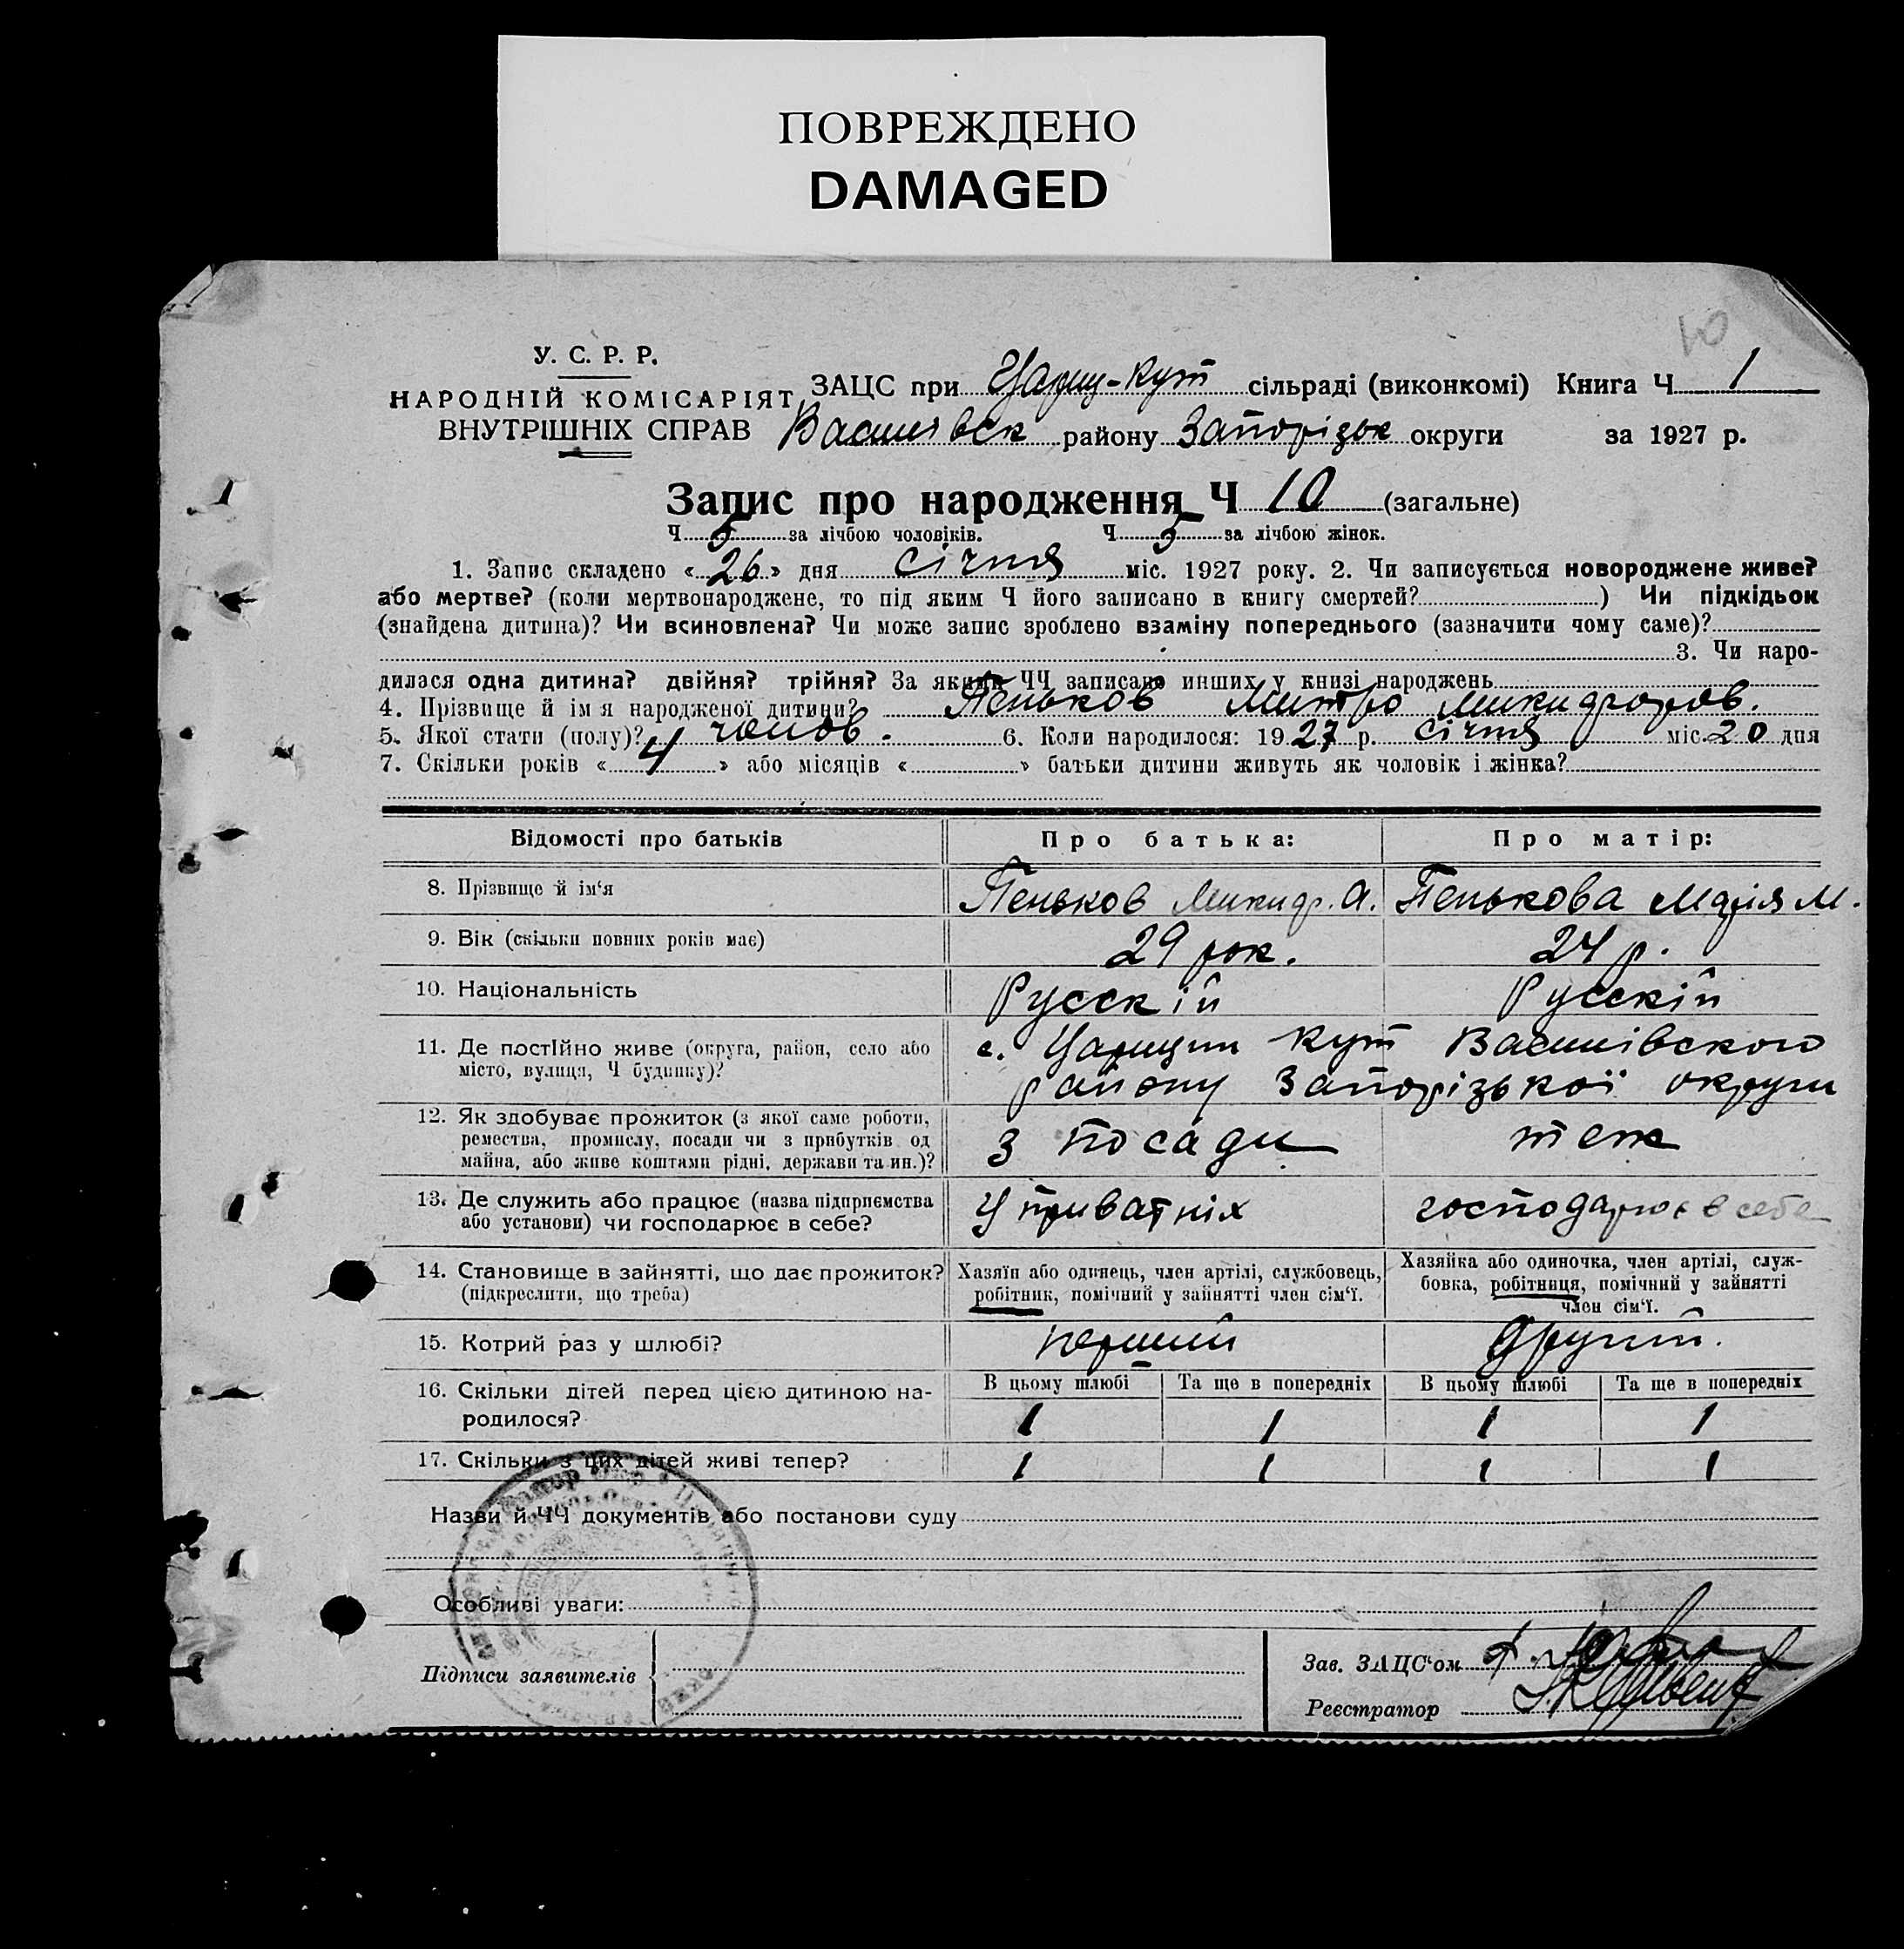 ПОВРЕЖДЕНО
DAMAGED
10
У. С. Р. Р.
НАРОДНІЙ КОМІСАРІЯТ
ВНУТРІШНІХ СПРАВ
ЗАЦС при Цариц-Кут сільраді (виконкомі) Книга Ч 1
Василівск району Запорізьк округи за 1927 р.
Запис про народження Ч 10 (загальне)
Ч 5 за лічбою чоловіків. Ч 5 за лічбою жінок.
1. Запис складено «26» дня січня міс. 1927 року. 2. Чи записується новороджене живе?
або мертве? (коли мертвонароджене, то під яким Ч його записано в книгу смертей?) Чи підкідьок
(знайдена дитина)? Чи всиновлена? Чи може запис зроблено взаміну попереднього (зазначити чому саме)?
3. Чи наро-
дилася одна дитина? двійня? трійня? За якими ЧЧ записано инших у книзі народжень
4. Прізвище й ім я народженої дитини? Пеньков Митро Микидров.
5. Якої стати (полу)? чолов. 6. Коли народилося: 1927 р. січня міс. 20 дня
7. Скільки років «4» або місяців « » батьки дитини живуть як чоловік і жінка?
Відомості про батьків Про батька: Про матір:
8. Прізвище й ім'я Пеньков Микидр. А. Пенькова Марія М.
9. Вік (скільки повних років має) 29 рок. 24 р.
10. Національність Русскій Русскій
11. Де постійно живе (округа, район, село або с. Царицин Кут Василівського
місто, вулиця, Ч будинку)? району Запорізької округи
12. Як здобуває прожиток (з якої саме роботи,
ремества, промислу, посади чи з прибутків од З посади теж
майна, або живе коштами рідні, держави та ин.)?
13. Де служить або працює (назва підприємства У приватніх господарює в себе
або установи) чи господарює в себе?
14. Становище в зайнятті, що дає прожиток? Хазяїн або одинець, член артілі, службовець, Хазяйка або одиночка, член артілі, служ-
(підкреслити, що треба) робітник, помічний у зайнятті член сім'ї. бовка, робітниця, помічний у зайнятті
член сім'ї.
15. Котрий раз у шлюбі? перший другий.
16. Скільки дітей перед цією дитиною на- В цьому шлюбі Та ще в попередніх В цьому шлюбі Та ще в попередніх
родилося? 1 1 1 1
17. Скільки з цих дітей живі тепер? 1 1 1 1
Назви й ЧЧ документів або постанови суду
Особливі уваги:
Підписи заявителів
Зав. ЗАЦС'ом
Реєстратор